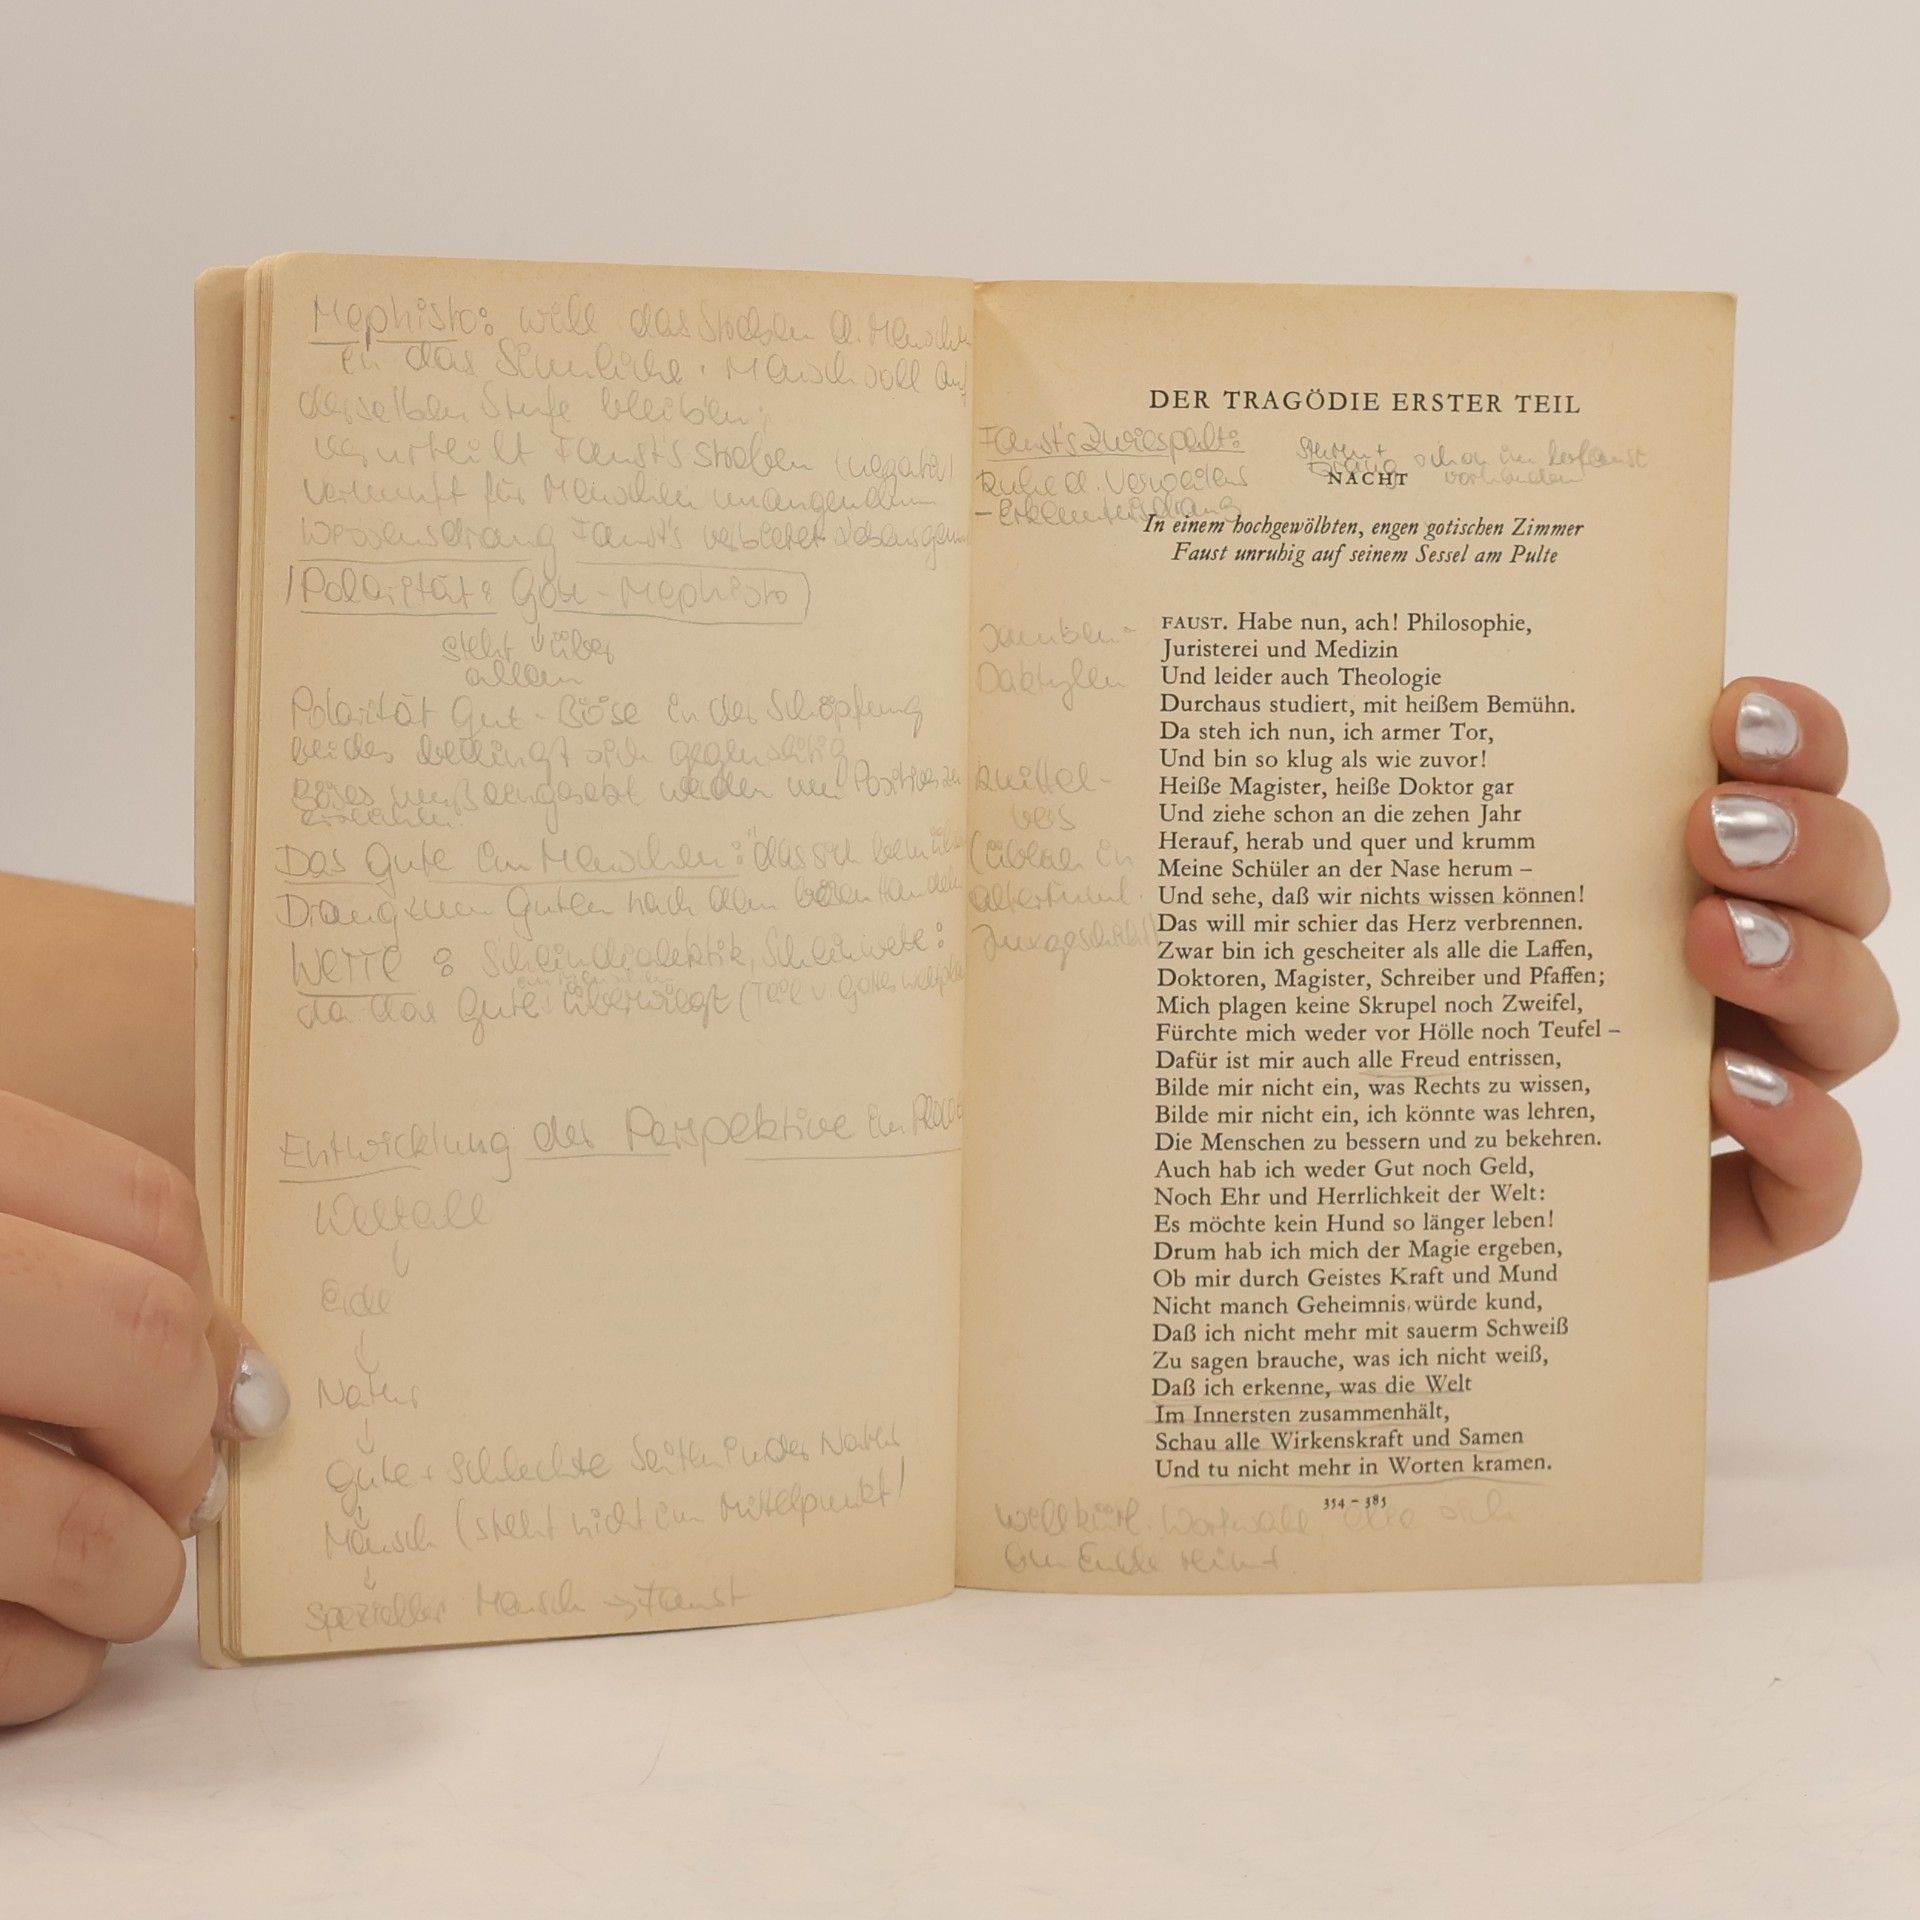 Mephisto: will das Streben d. Menschen
in das Sinnliche. Mensch soll auf
derselben Stufe bleiben;
verurteilt Faust's Streben (negativ)
Vernunft für Menschen unangenehm
Wissensdrang Faust's verbietet
Polarität: Gott - Mephisto
steht über
allem
Polarität Gut - Böse in der Schöpfung
beides bedingt sich gegenseitig
Böses muß eingesetzt werden um Positives zu
erreichen.
Das Gute im Menschen:
Drang zum Guten nach dem bösen Handeln
WETTE: Scheindialektik, Scheinwette:
da das Gute überwiegt (Teil v. Gottes Weltplan
Entwicklung der Perspektive im
Weltall
Erde
Natur
Gute + Schlechte Seiten in der Natur
Mensch (steht nicht im Mittelpunkt)
spezieller Mensch → Faust
DER TRAGÖDIE ERSTER TEIL
Faust's Zwiespalt:
Sturm +
Drang schon im Urfaust
vorhanden
Ruhe d. Verweilens
- Erkenntnisdrang
NACHT
In einem hochgewölbten, engen gotischen Zimmer
Faust unruhig auf seinem Sessel am Pulte
Jamben -
Daktylen
Knittel-
vers
(üblich in
altertüml.
FAUST. Habe nun, ach! Philosophie,
Juristerei und Medizin
Und leider auch Theologie
Durchaus studiert, mit heißem Bemühn.
Da steh ich nun, ich armer Tor,
Und bin so klug als wie zuvor!
Heiße Magister, heiße Doktor gar
Und ziehe schon an die zehen Jahr
Herauf, herab und quer und krumm
Meine Schüler an der Nase herum –
Und sehe, daß wir nichts wissen können!
Das will mir schier das Herz verbrennen.
Zwar bin ich gescheiter als alle die Laffen,
Doktoren, Magister, Schreiber und Pfaffen;
Mich plagen keine Skrupel noch Zweifel,
Fürchte mich weder vor Hölle noch Teufel –
Dafür ist mir auch alle Freud entrissen,
Bilde mir nicht ein, was Rechts zu wissen,
Bilde mir nicht ein, ich könnte was lehren,
Die Menschen zu bessern und zu bekehren.
Auch hab ich weder Gut noch Geld,
Noch Ehr und Herrlichkeit der Welt:
Es möchte kein Hund so länger leben!
Drum hab ich mich der Magie ergeben,
Ob mir durch Geistes Kraft und Mund
Nicht manch Geheimnis würde kund,
Daß ich nicht mehr mit sauerm Schweiß
Zu sagen brauche, was ich nicht weiß,
Daß ich erkenne, was die Welt
Im Innersten zusammenhält,
Schau alle Wirkenskraft und Samen
Und tu nicht mehr in Worten kramen.
354 – 385
willkürl. Wortwahl, die sich
am Ende reimt